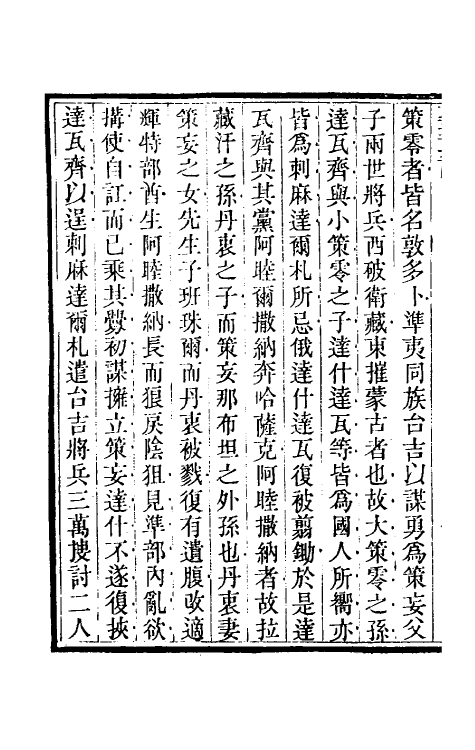 策零者皆名敦多卜準夷同族台吉以謀勇爲策妄父
子兩世將兵西破衛藏東摧蒙古者也故大策零之孫
達瓦齊與小策零之子達什達瓦等皆爲國人所嚮亦
皆爲刺麻達爾札所忌俄達什達瓦復被翦鋤於是達
瓦齊與其黨阿睦爾撒納奔哈薩克阿睦撒納者故拉
藏汗之孫丹衷之子而策妄那布坦之外孫也丹衷妻
策妄之女先生子班珠爾而丹衷被戮復有遺腹改適
輝特部酋生阿睦撒納長而狼戾陰狙見準部內亂欲
搆使自訌而已乘其釁初謀擁立策妄達什不遂復挾
達瓦齊以逞刺麻達爾札遣台吉將兵三萬搜討二人